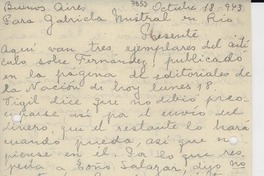 Buenos Aires Octubre 18. 943
Para Gabriela Mistral en Rio
Presente
Aquí van tres ejemplares del artí
culo sobre Fernandez, publicado
en la página de editoriales de
la Nación di hoy lunes 18
Vigil dice que no debió preo-
cuparse así por el envío del
dinero, que el restante lo hara
cuando pueda, así que no
piense en él. En lo que res-
pecta a Toño Salazar, dijo no